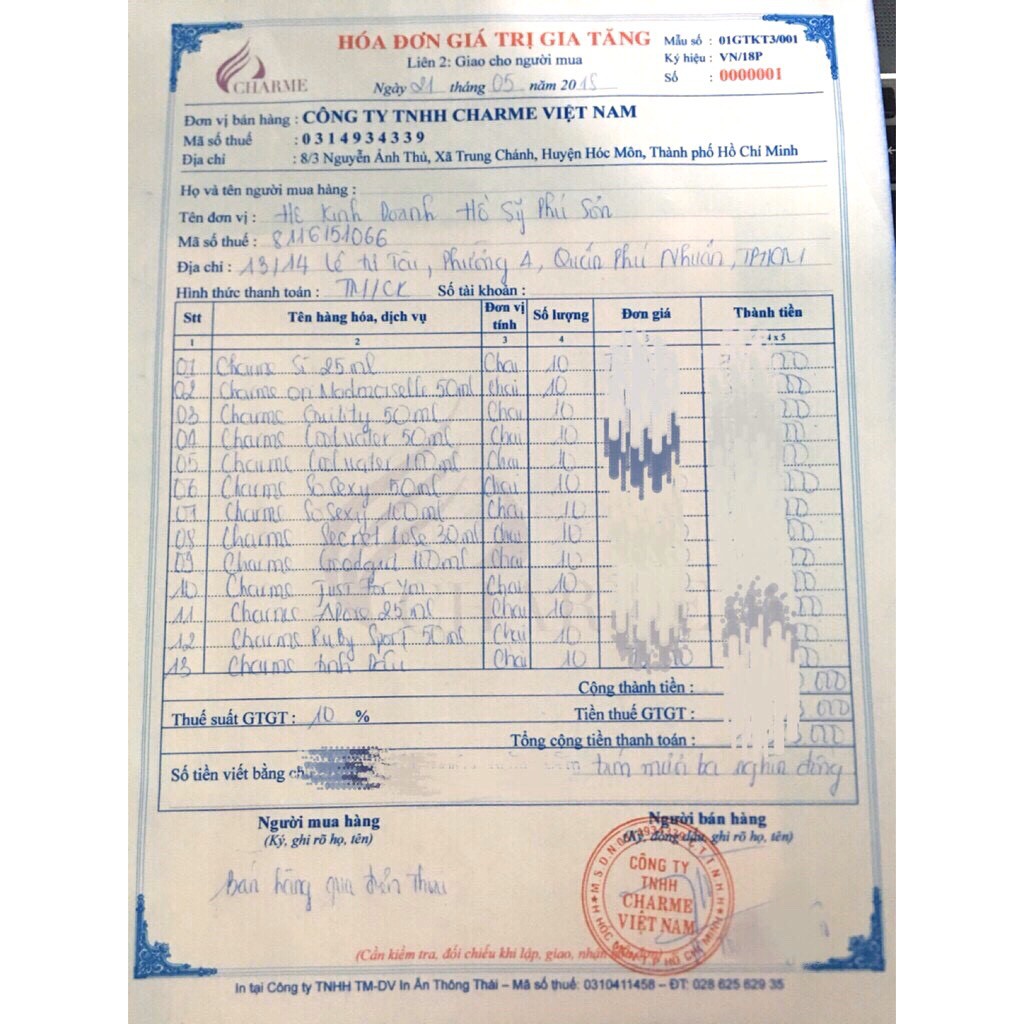 CHARME
HÓA ĐƠN GIÁ TRỊ GIA TĂNG
Liên 2: Giao cho người mua
Ngày 21 tháng 05 năm 2018
Mẫu số : 01GTKT3/001
Ký hiệu : VN/18P
Số : 0000001
Đơn vị bán hàng : CÔNG TY TNHH CHARME VIỆT NAM
Mã số thuế : 0314934339
Địa chỉ : 8/3 Nguyễn Ảnh Thủ, Xã Trung Chánh, Huyện Hóc Môn, Thành phố Hồ Chí Minh
Họ và tên người mua hàng :
Tên đơn vị : Hộ Kinh Doanh Hồ Sỹ Phú Sơn
Mã số thuế : 8116151066
Địa chỉ : 13/14 Lê Tự Tài, Phường 4, Quận Phú Nhuận, TPHCM
Hình thức thanh toán : TM/CK Số tài khoản :
Stt Tên hàng hóa, dịch vụ Đơn vị tính Số lượng Đơn giá Thành tiền
1 2 3 4 5 4 x 5
01 Charme Si 25ml Chai 10
02 Charme Madmoiselle 50ml Chai 10
03 Charme Guility 50ml Chai 10
04 Charme Coolwater 50ml Chai 10
05 Charme Coolwater 100ml Chai 10
06 Charme So Sexy 50ml Chai 10
07 Charme So Sexy 100ml Chai 10
08 Charme Secret 30ml Chai 10
09 Charme Goodgirl 100ml Chai 10
10 Charme Just For You Chai 10
11 Charme 25ml Chai 10
12 Charme Ruby Sport 50ml Chai 10
13 Charme Chai 10
Cộng thành tiền : 000
Thuế suất GTGT : 10 % Tiền thuế GTGT : 000
Tổng cộng tiền thanh toán : 000
Số tiền viết bằng tám mươi ba nghìn đồng
Người mua hàng
(Ký, ghi rõ họ, tên)
Người bán hàng
(Ký, đóng dấu, ghi rõ họ, tên)
Bán hàng qua điện thoại
CÔNG TY
TNHH
CHARME
VIỆT NAM
(Cần kiểm tra, đối chiếu khi lập, giao, nhận
In tại Công ty TNHH TM-DV In Ấn Thông Thái – Mã số thuế: 0310411458 – ĐT: 028 625 629 35